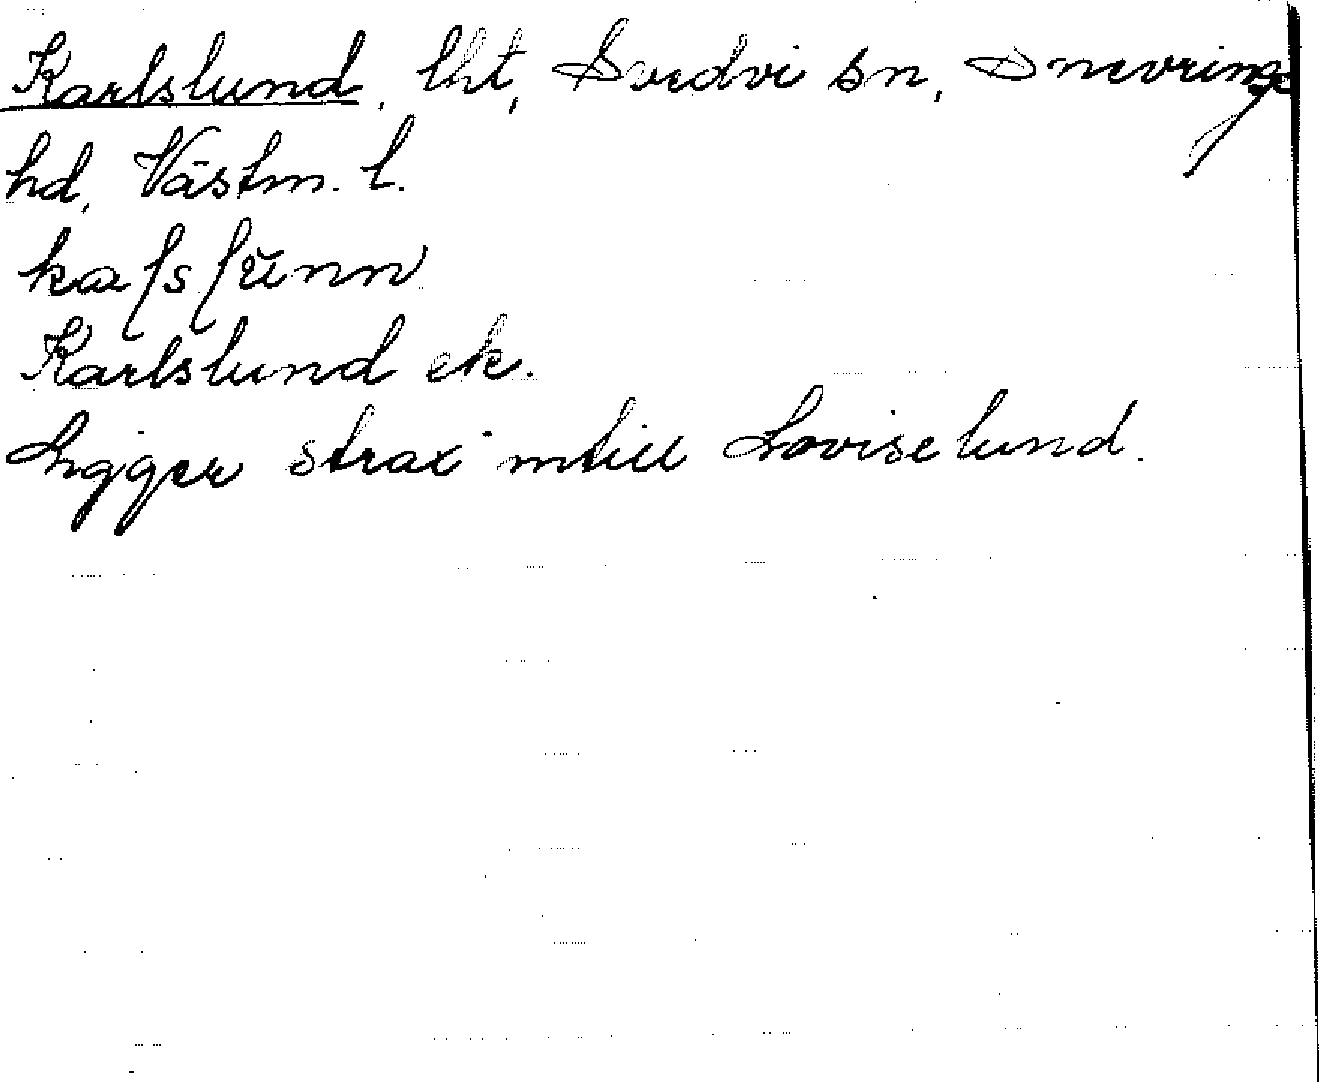 Karlslund, lht, Svedvi sn, Snevringe
hd, Västm. l.
Karlslund ek.
Ligger strax intill Loviselund.